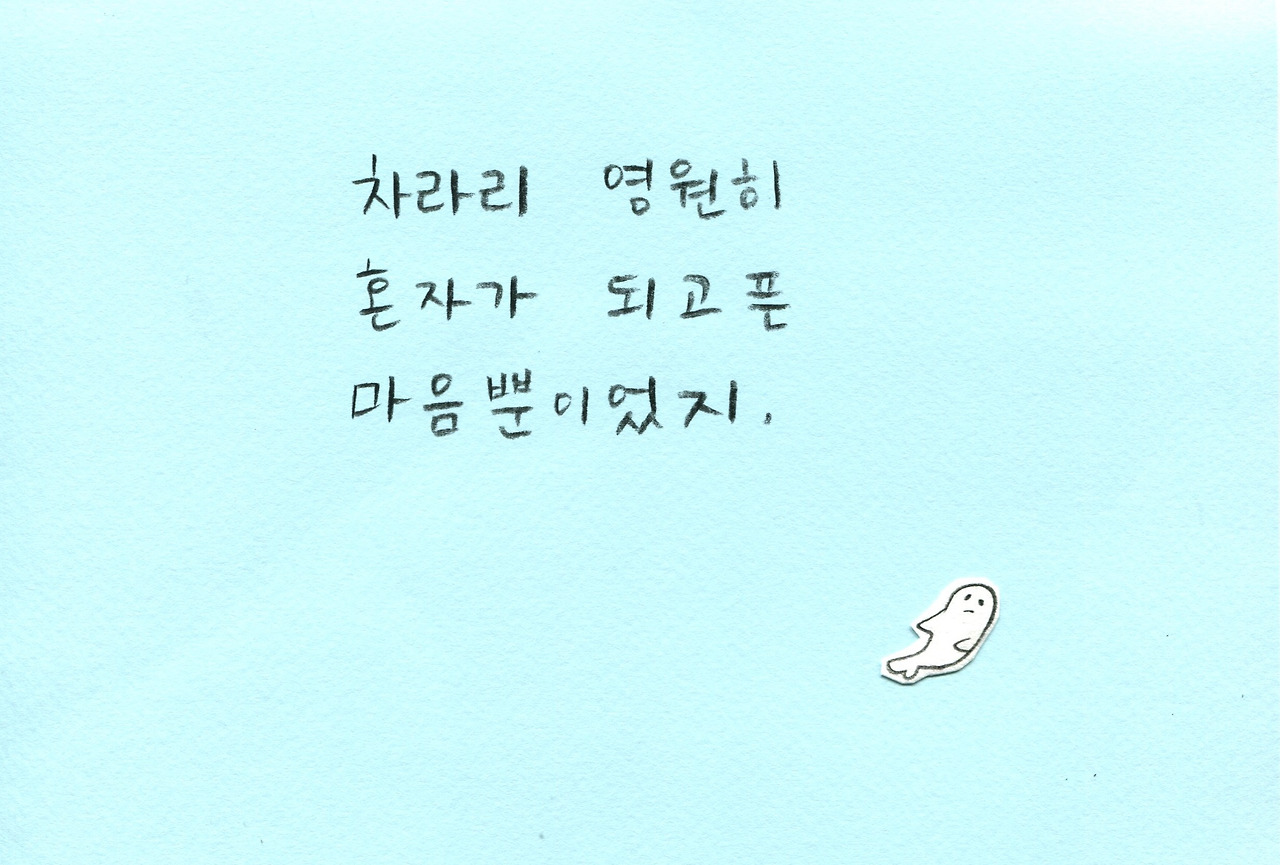 차라리 영원히
혼자가 되고픈
마음뿐이었지.